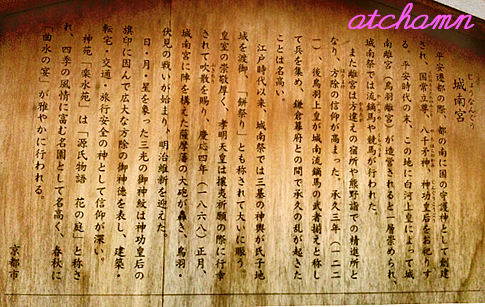 atchamn
じょうなんぐう
城南宮
平安遷都の際、都の南に国の守護神として創建
され、国常立尊、八千矛神、神功皇后をお祀りす
る。平安時代の末、この地に白河上皇によって城
南離宮(鳥羽離宮)が造営されると一層崇められ、
城南祭では流鏑馬や競馬が行われた。
また離宮は方違えの宿所や熊野詣での精進所と
なり、方除の信仰が高まった。承久三年(一二二
一)、後鳥羽上皇が城南流鏑馬の武者揃えと称し
て兵を集め、鎌倉幕府との間で承久の乱が起きた
ことは名高い。
江戸時代以来、城南祭では三基の神輿が氏子地
域を渡御し、「餅祭り」とも称されて大いに賑う。
皇室の崇敬厚く、孝明天皇は攘夷祈願の際に行幸
されて吹散を賜り、慶応四年(一八六八)正月、
城南宮に陣を構えた薩摩藩の大砲が轟き、鳥羽・
伏見の戦いが始まり、明治維新を迎えた。
日・月・星を象った三光の御神紋は神功皇后の
旗印に因んで広大な方除の御神徳を表し、建築・
転宅・交通・旅行安全の神として信仰が深い。
神苑「楽水苑」は「源氏物語 花の庭」と称さ
れ、四季の風情に富む名園として名高く、春秋に
「曲水の宴」が雅やかに行われる。
京都市